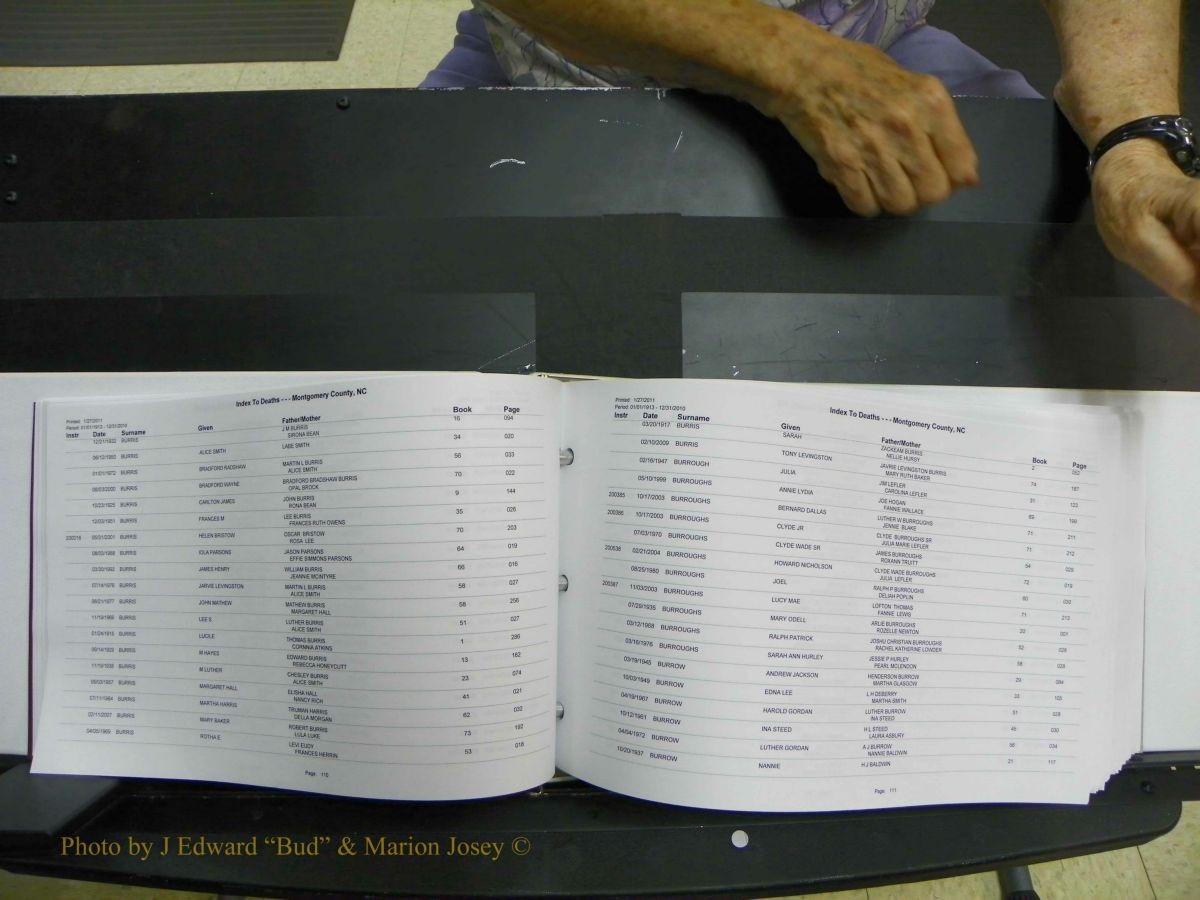 Index To Deaths - - - Montgomery County, NC
Printed: 1/27/2011
Period: 01/01/1913 - 12/31/2010
Instr Date Surname Given Father/Mother Book Page
BURRIS ALICE SMITH J M BURRIS 16 094
SIRONA BEAN
BURRIS LABE SMITH 34 020
BURRIS BRADFORD RADSHAW MARTIN L BURRIS 56 033
ALICE SMITH
BURRIS BRADFORD WAYNE BRADFORD BRADSHAW BURRIS 70 022
OPAL BROCK
BURRIS CARLTON JAMES JOHN BURRIS 9 144
RONA BEAN
BURRIS FRANCES M LEE BURRIS 35 026
FRANCES RUTH OWENS
BURRIS HELEN BRISTOW OSCAR BRISTOW 70 203
ROSA LEE
BURRIS IOLA PARSONS JASON PARSONS 64 019
EFFIE SIMMONS PARSONS
BURRIS JAMES HENRY WILLIAM BURRIS 66 016
JEANNIE MCINTYRE
BURRIS JARVIE LEVINGSTON MARTIN L BURRIS 58 027
ALICE SMITH
BURRIS JOHN MATHEW MATHEW BURRIS 58 256
MARGARET HALL
BURRIS LEE S LUTHER BURRIS 51 027
ALICE SMITH
BURRIS LUCILE THOMAS BURRIS 1 286
CORNNIA ATKINS
BURRIS M HAYES EDWARD BURRIS 13 182
REBECCA HONEYCUTT
BURRIS M LUTHER CHESLEY BURRIS 23 074
ALICE SMITH
BURRIS MARGARET HALL ELISHA HALL 41 021
NANCY RICH
BURRIS MARTHA HARRIS TRUMAN HARRIS 62 032
DELLA MORGAN
BURRIS MARY BAKER ROBERT BURRIS 73 192
LULA LUKE
BURRIS ROTHA E LEVI EUDY 53 018
FRANCES HERRIN
Page: 110
Printed: 1/27/2011
Period: 01/01/1913 - 12/31/2010
Index To Deaths - - - Montgomery County, NC
Instr Date Surname Given Father/Mother Book Page
03/20/1917 BURRIS SARAH ZACKEAM BURRIS 2 052
NELLIE HURSY
02/10/2009 BURRIS TONY LEVINGSTON JAVRIE LEVINGSTON BURRIS 74 187
MARY RUTH BAKER
02/16/1947 BURROUGH JULIA JIM LEFLER 31 123
CAROLINA LEFLER
05/10/1999 BURROUGHS ANNIE LYDIA JOE HOGAN 69 199
FANNIE WALLACE
200385 10/17/2003 BURROUGHS BERNARD DALLAS LUTHER W BURROUGHS 71 211
JENNIE BLAKE
200386 10/17/2003 BURROUGHS CLYDE JR CLYDE BURROUGHS SR 71 212
JULIA MARIE LEFLER
07/03/1970 BURROUGHS CLYDE WADE SR JAMES BURROUGHS 54 026
ROXANN TRUITT
02/21/2004 BURROUGHS HOWARD NICHOLSON CLYDE WADE BURROUGHS 72 019
JULIA LEFLER
08/25/1980 BURROUGHS JOEL RALPH P BURROUGHS 60 030
DELIAH POPLIN
200387 11/03/2003 BURROUGHS LUCY MAE LOFTON THOMAS 71 213
FANNIE LEWIS
07/20/1935 BURROUGHS MARY ODELL ARLIE BURROUGHS 20 001
ROZELLE NEWTON
03/12/1968 BURROUGHS RALPH PATRICK JOSHU CHRISTIAN BURROUGHS 52 026
RACHEL KATHERINE LOWDER
03/16/1976 BURROUGHS SARAH ANN HURLEY JESSIE P HURLEY 58 028
PEARL MCLENDON
03/19/1945 BURROW ANDREW JACKSON HENDERSON BURROW 29 084
MARTHA GLASGOW
10/03/1949 BURROW EDNA LEE L H DEBERRY 33 105
MARTHA SMITH
04/19/1967 BURROW HAROLD GORDAN LUTHER BURROW 51 028
INA STEED
10/12/1961 BURROW INA STEED H L STEED 45 030
LAURA ASBURY
04/04/1972 BURROW LUTHER GORDAN A J BURROW 56 034
NANNIE BALDWIN
10/20/1937 BURROW NANNIE H J BALDWIN 21 117
Page: 111
Photo by J Edward “Bud” & Marion Josey ©